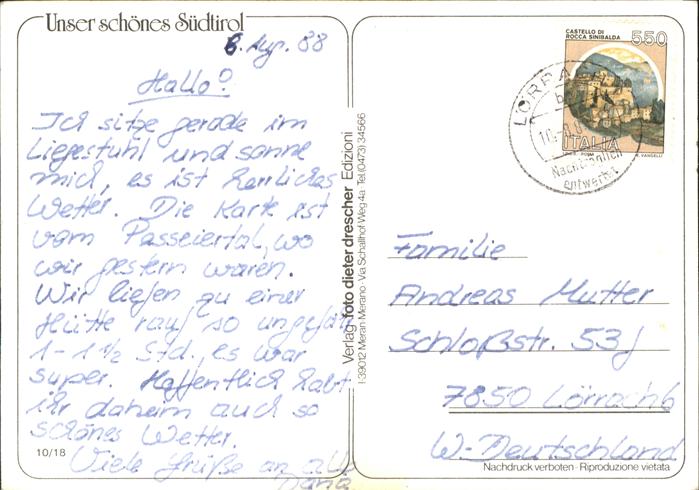 Unser schönes Südtirol
8. Aug. 88
Hallo!
Ich sitze gerade im
Liegestuhl und sonne
mich, es ist herrliches
Wetter. Die Karte ist
vom Passeiertal, wo
wir gestern waren.
Wir liefen zu einer
Hütte rauf so ungefähr
1 - 1 1/2 Std. es war
super. Hoffentlich habt
ihr daheim auch so
schönes Wetter.
Viele Grüße an alle
10/18
Verlag foto dieter drescher Edizioni
I-39012 Meran Merano · Via Schallhof-Weg 4a Tel. (0473) 34566
CASTELLO DI
ROCCA SINIBALDA
550
ITALIA
LÖRRA
Nachträglich
entwertet
Familie
Andreas Mutter
Schloßstr. 53j
7850 Lörrach 6
W-Deutschland
Nachdruck verboten · Riproduzione vietata